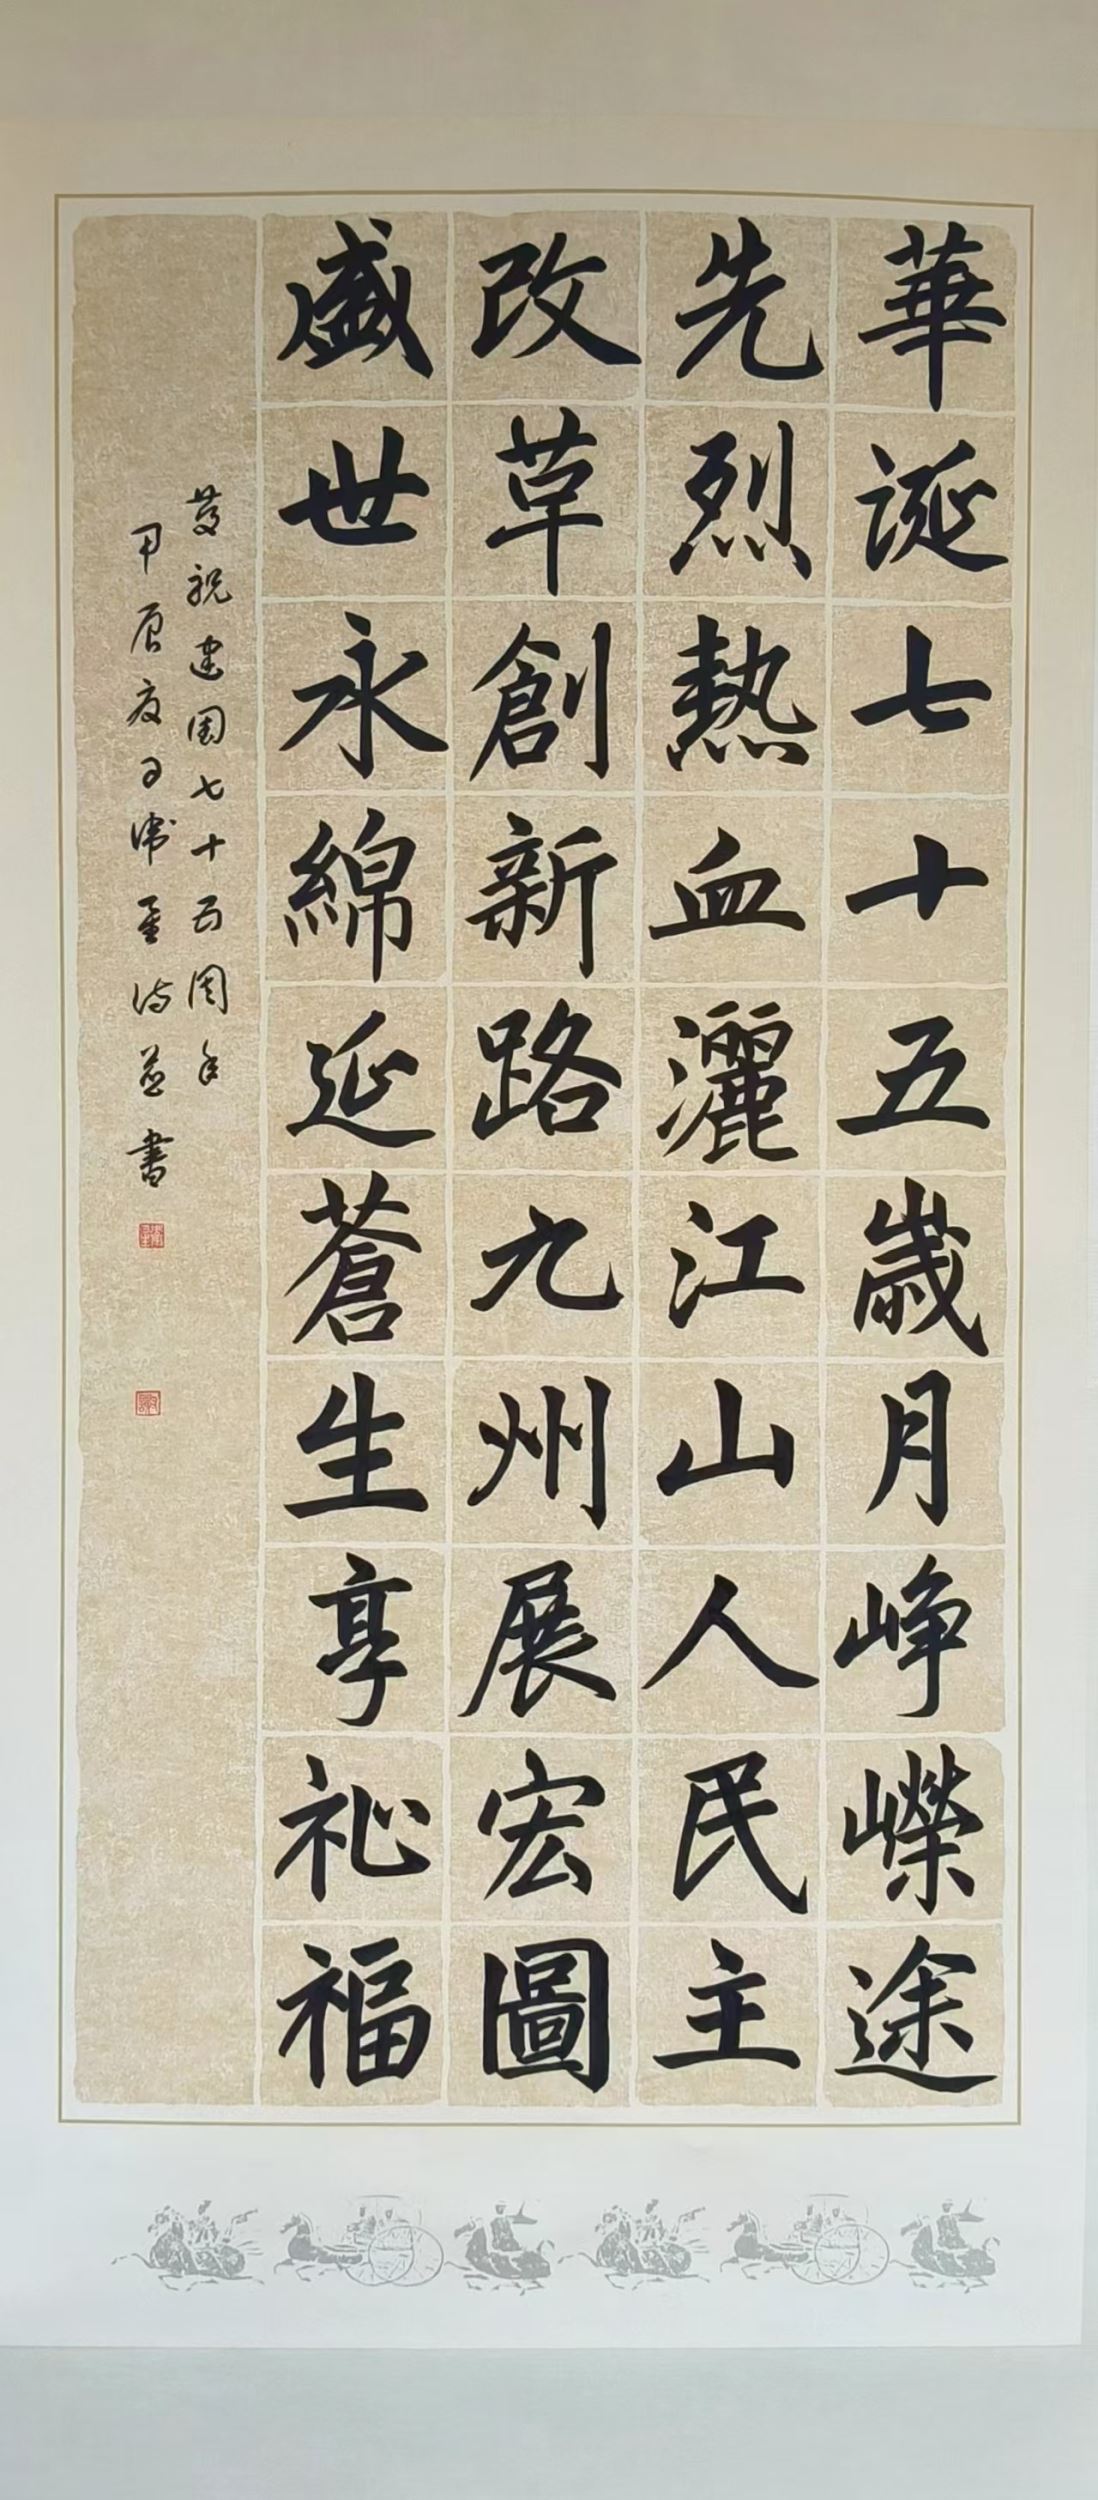 華誕七十五歲月崢嶸途
先烈熱血灑江山人民主
改草創新路九州展宏圖
盛世永綿延蒼生享祉福
慶祝建國七十五周年
甲辰夏月 詩並書